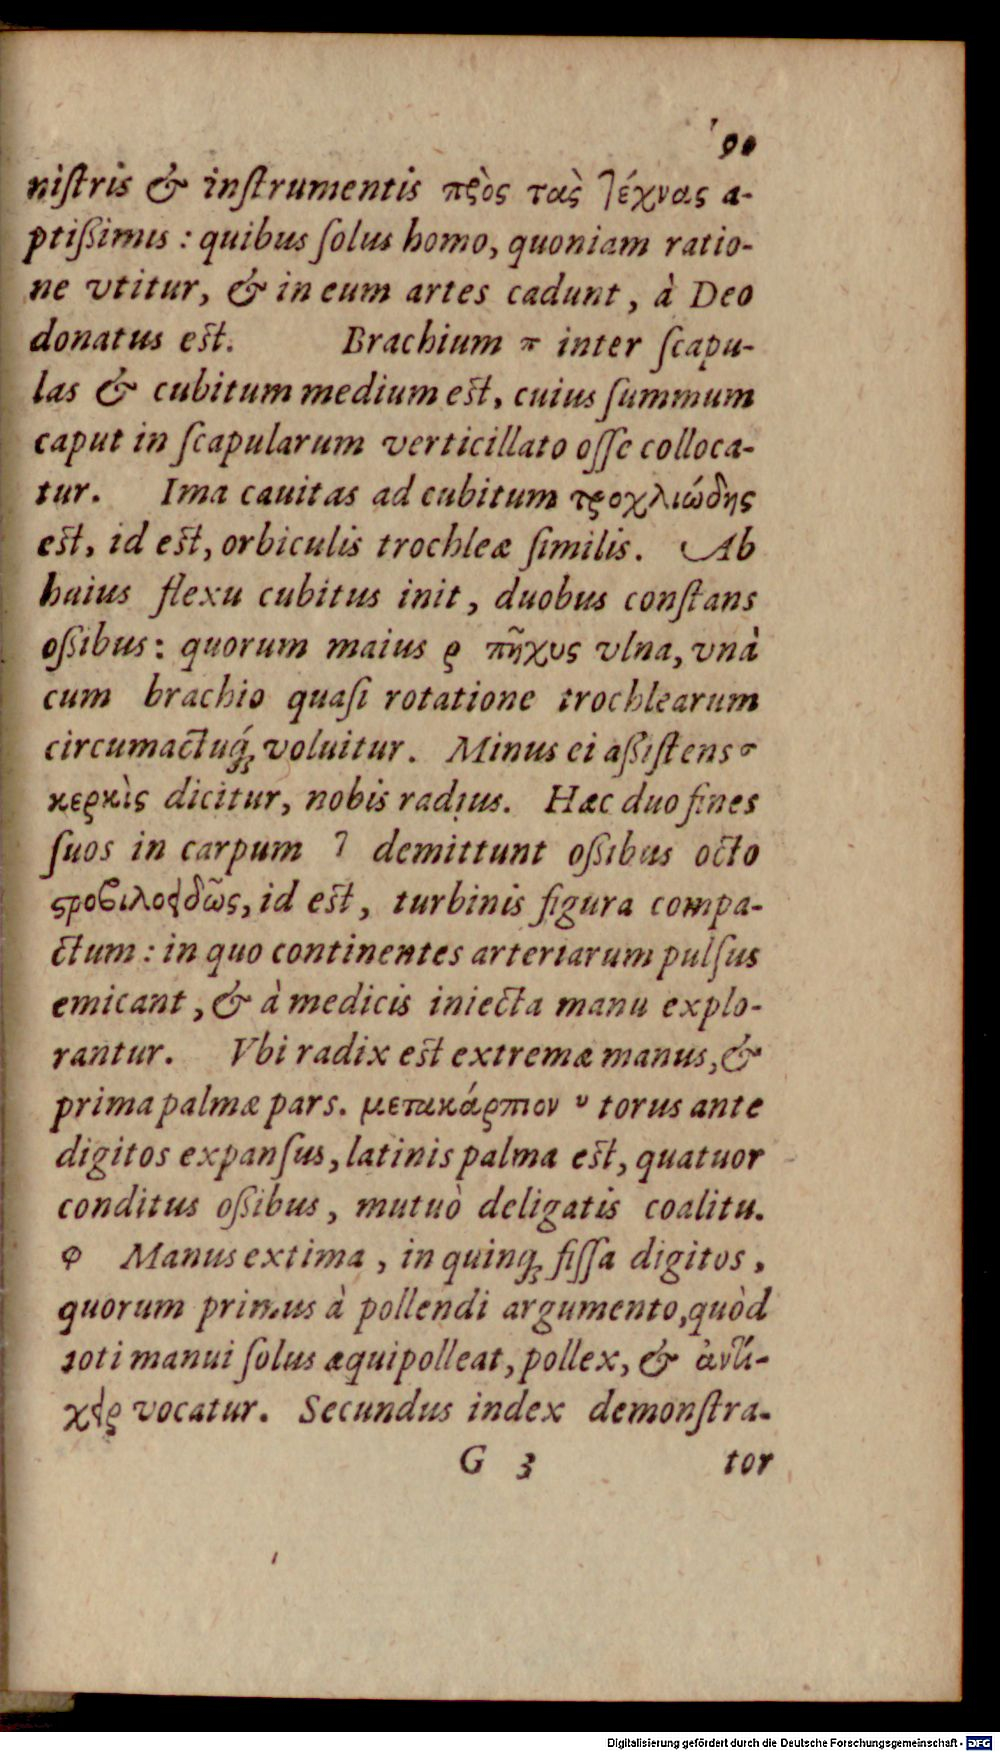 90
niſtris & inſtrumentis πρὸς τὰς τέχνας a-
ptißimis : quibus ſolus homo, quoniam ratio-
ne vtitur, & in eum artes cadunt, à Deo
donatus est. Brachium π inter ſcapu-
las & cubitum medium est, cuius ſummum
caput in ſcapularum verticillato oſſe colloca-
tur. Ima cauitas ad cubitum τροχλιώδης
est, id est, orbiculis trochleæ ſimilis. Ab
huius flexu cubitus init, duobus conſtans
oßibus: quorum maius ρ πῆχυς vlna, vnà
cum brachio quaſi rotatione trochlearum
circumactuq́; voluitur. Minus ei aßiſtens σ
κερκὶς dicitur, nobis radius. Hæc duo fines
ſuos in carpum τ demittunt oßibus octo
ϛροβιλοειδῶς, id est, turbinis figura compa-
ctum : in quo continentes arteriarum pulſus
emicant, & à medicis iniecta manu explo-
rantur. Vbi radix est extremæ manus, &
prima palmæ pars. μετακάρπιον υ torus ante
digitos expanſus, latinis palma est, quatuor
conditus oßibus, mutuò deligatis coalitu.
φ Manus extima, in quinq; fiſſa digitos,
quorum primus à pollendi argumento, quòd
toti manui ſolus æquipolleat, pollex, & ἀντί-
χειρ vocatur. Secundus index demonſtra-
G 3 tor
Digitalisierung gefördert durch die Deutsche Forschungsgemeinschaft - DFG